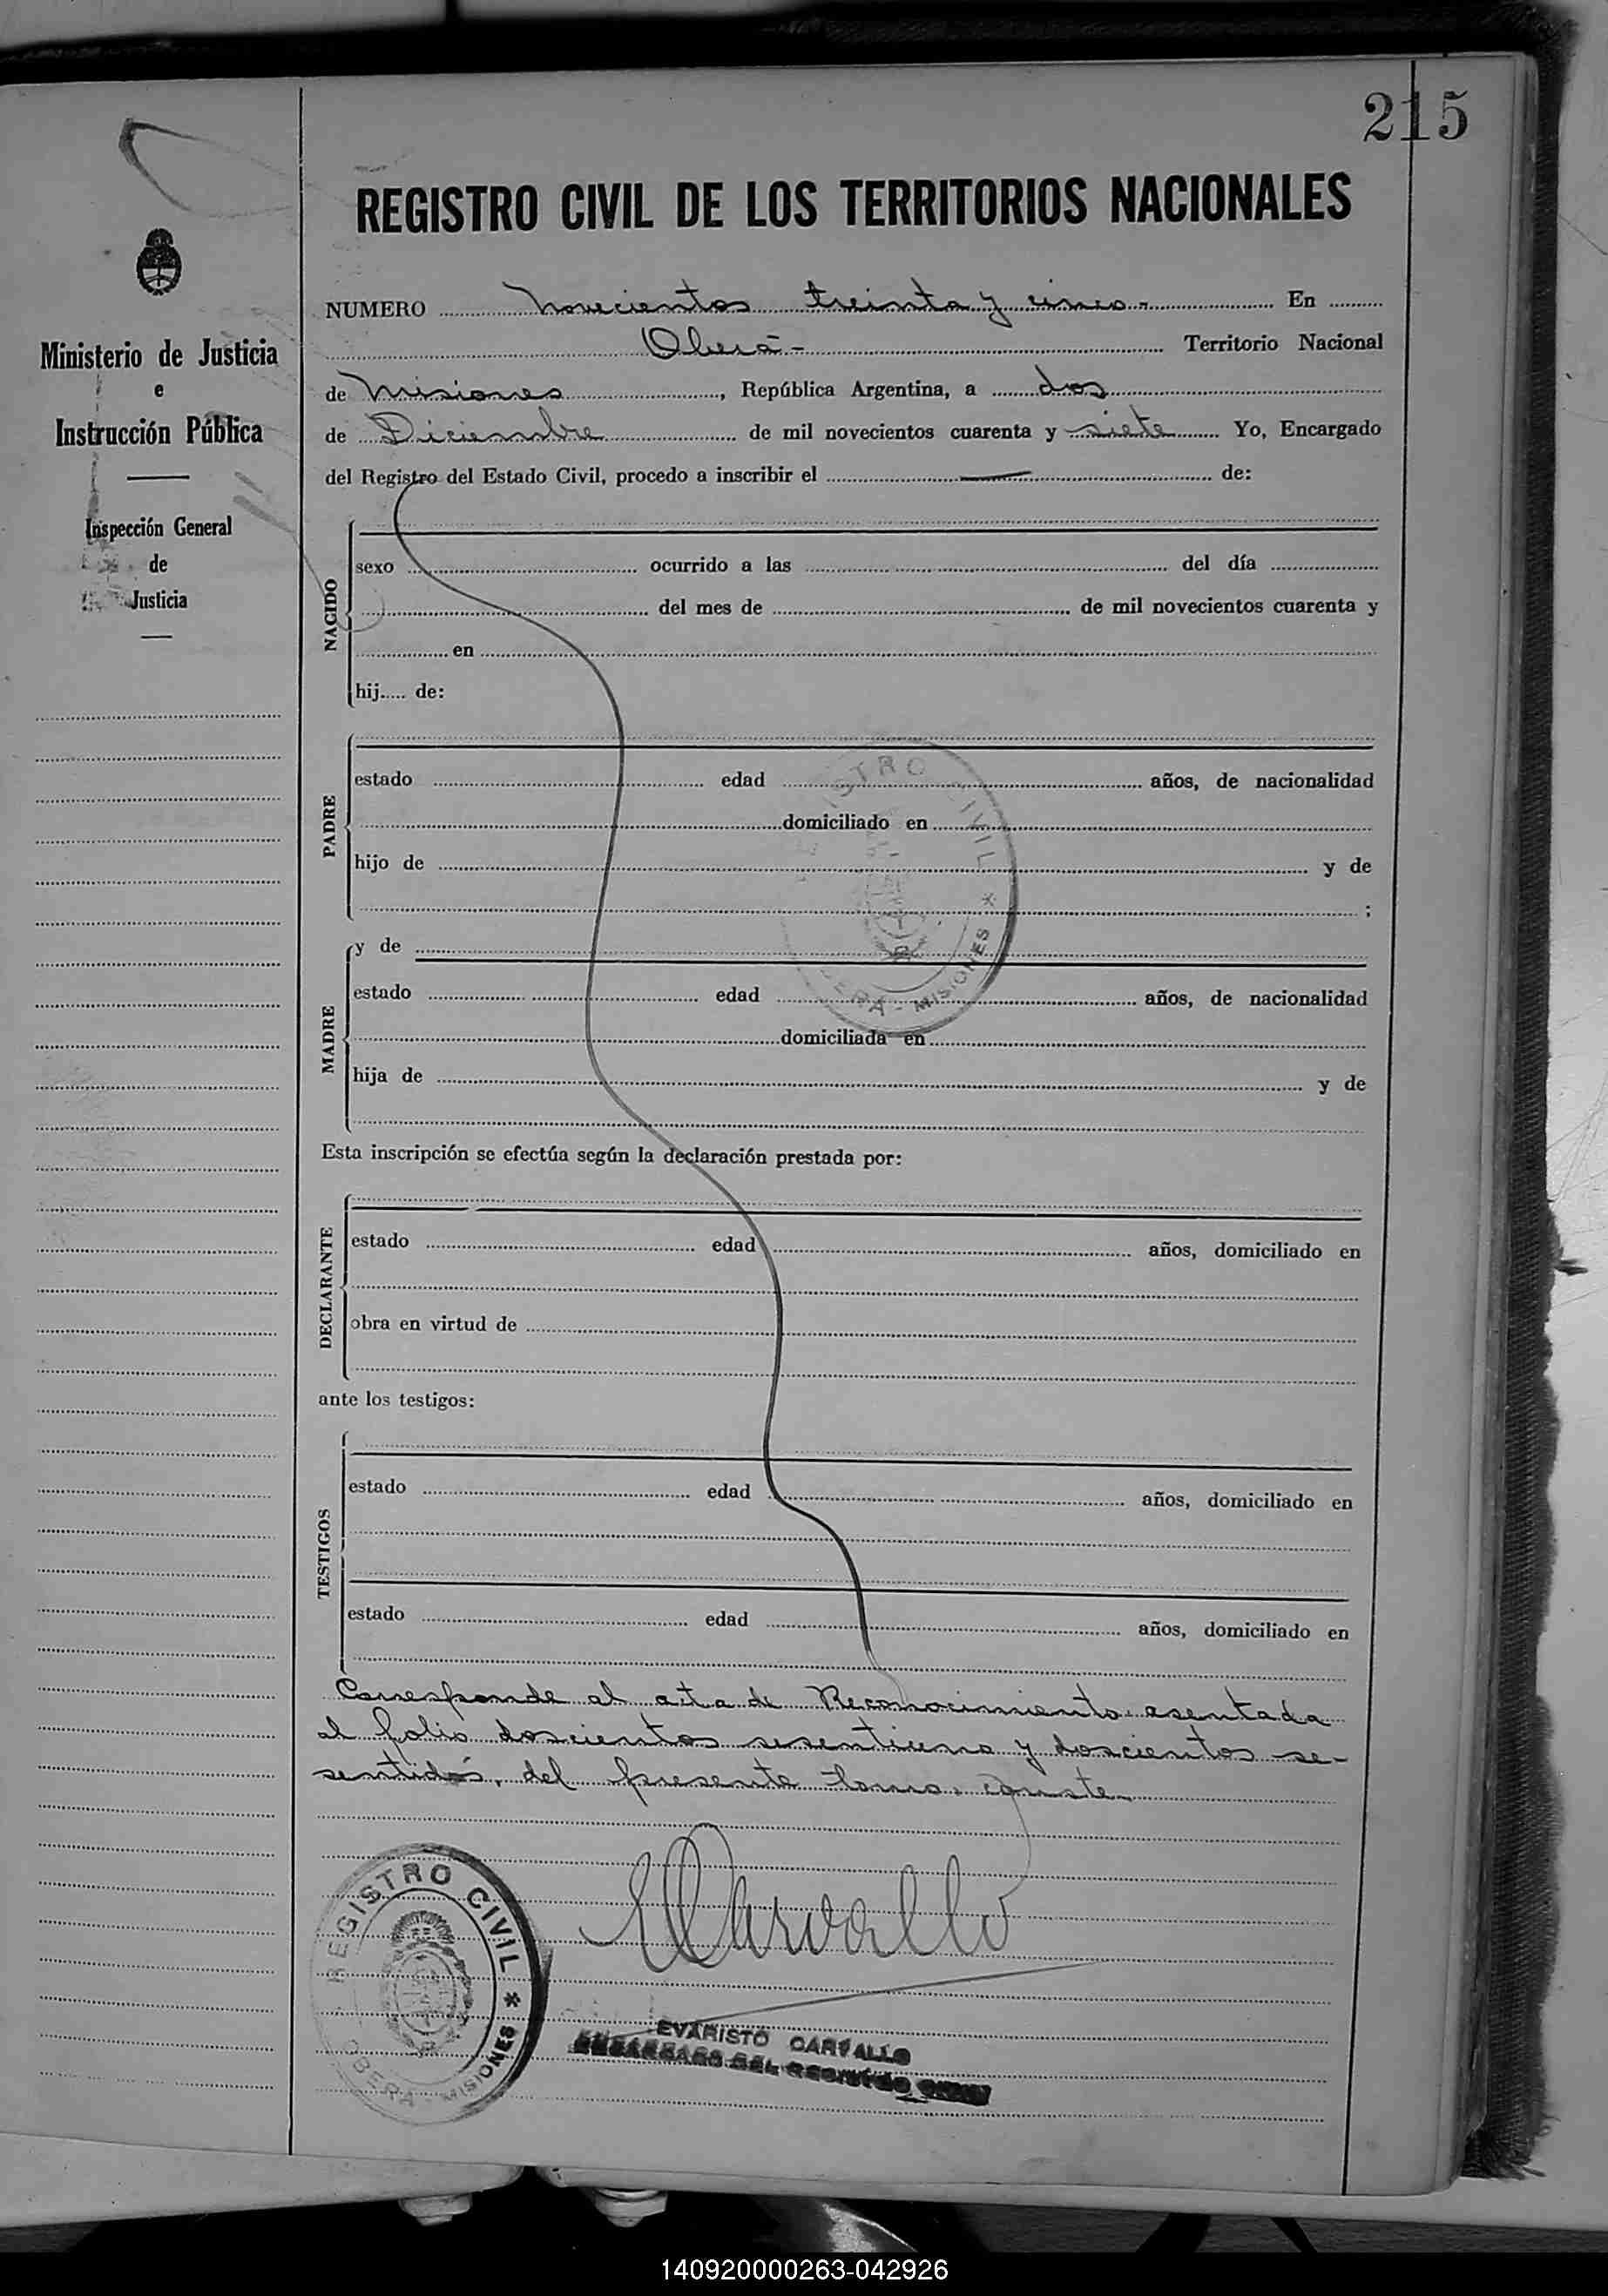 215
REGISTRO CIVIL DE LOS TERRITORIOS NACIONALES
Ministerio de Justicia
e
Instrucción Pública
Inspección General
de
Justicia
NUMERO Novecientos treinta y cinco.- En
Oberá- Territorio Nacional
de Misiones, República Argentina, a dos
de Diciembre de mil novecientos cuarenta y siete Yo, Encargado
del Registro del Estado Civil, procedo a inscribir el — de:
NACIDO
sexo ocurrido a las del día
del mes de de mil novecientos cuarenta y
en
hij..... de:
PADRE
estado edad años, de nacionalidad
domiciliado en
hijo de y de
;
MADRE
y de
estado edad años, de nacionalidad
domiciliada en
hija de y de
ISTRO CIVIL * ERA - MISIONES
Esta inscripción se efectúa según la declaración prestada por:
DECLARANTE
estado edad años, domiciliado en
obra en virtud de
ante los testigos:
TESTIGOS
estado edad años, domiciliado en
estado edad años, domiciliado en
Corresponde al acta de Reconocimiento asentada
al folio doscientos sesentiuno y doscientos se-
sentidós, del presente tomo. conste.
ECarvallo
REGISTRO CIVIL * OBERA - MISIONES
EVARISTO CARVALLO
ENCARGADO DEL REGISTRO CIVIL
140920000263-042926